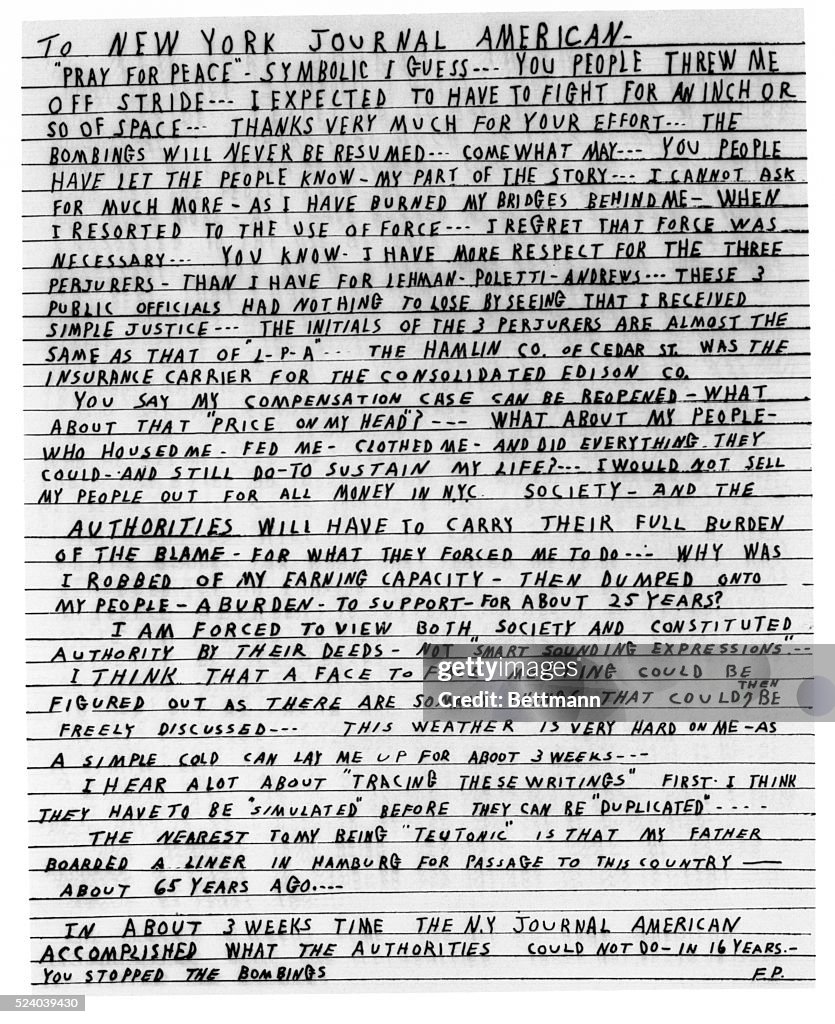 TO NEW YORK JOURNAL AMERICAN-
"PRAY FOR PEACE"- SYMBOLIC I GUESS--- YOU PEOPLE THREW ME
OFF STRIDE--- I EXPECTED TO HAVE TO FIGHT FOR AN INCH OR
SO OF SPACE--- THANKS VERY MUCH FOR YOUR EFFORT--- THE
BOMBINGS WILL NEVER BE RESUMED--- COME WHAT MAY--- YOU PEOPLE
HAVE LET THE PEOPLE KNOW - MY PART OF THE STORY--- I CANNOT ASK
FOR MUCH MORE - AS I HAVE BURNED MY BRIDGES BEHIND ME - WHEN
I RESORTED TO THE USE OF FORCE--- I REGRET THAT FORCE WAS
NECESSARY--- YOU KNOW- I HAVE MORE RESPECT FOR THE THREE
PERJURERS - THAN I HAVE FOR LEHMAN- POLETTI - ANDREWS--- THESE 3
PUBLIC OFFICIALS HAD NOTHING TO LOSE BY SEEING THAT I RECEIVED
SIMPLE JUSTICE--- THE INITIALS OF THE 3 PERJURERS ARE ALMOST THE
SAME AS THAT OF "L-P-A"--- THE HAMLIN CO. OF CEDAR ST. WAS THE
INSURANCE CARRIER FOR THE CONSOLIDATED EDISON CO.
YOU SAY MY COMPENSATION CASE CAN BE REOPENED - WHAT
ABOUT THAT "PRICE ON MY HEAD"? --- WHAT ABOUT MY PEOPLE-
WHO HOUSED ME - FED ME - CLOTHED ME - AND DID EVERYTHING THEY
COULD - AND STILL DO - TO SUSTAIN MY LIFE?--- I WOULD NOT SELL
MY PEOPLE OUT FOR ALL MONEY IN N.Y.C. SOCIETY - AND THE
AUTHORITIES WILL HAVE TO CARRY THEIR FULL BURDEN
OF THE BLAME - FOR WHAT THEY FORCED ME TO DO--- WHY WAS
I ROBBED OF MY EARNING CAPACITY - THEN DUMPED ONTO
MY PEOPLE - A BURDEN - TO SUPPORT - FOR ABOUT 25 YEARS?
I AM FORCED TO VIEW BOTH SOCIETY AND CONSTITUTED
AUTHORITY BY THEIR DEEDS - NOT "SMART SOUNDING EXPRESSIONS"--
I THINK THAT A FACE TO COULD BE
FIGURED OUT AS THERE ARE THAT COULD THEN BE
FREELY DISCUSSED--- THIS WEATHER IS VERY HARD ON ME - AS
A SIMPLE COLD CAN LAY ME UP FOR ABOUT 3 WEEKS---
I HEAR A LOT ABOUT "TRACING THESE WRITINGS" FIRST - I THINK
THEY HAVE TO BE "SIMULATED" BEFORE THEY CAN BE "DUPLICATED"-----
THE NEAREST TO MY BEING "TEUTONIC" IS THAT MY FATHER
BOARDED A LINER IN HAMBURG FOR PASSAGE TO THIS COUNTRY —
ABOUT 65 YEARS AGO----
IN ABOUT 3 WEEKS TIME THE N.Y JOURNAL AMERICAN
ACCOMPLISHED WHAT THE AUTHORITIES COULD NOT DO - IN 16 YEARS.-
YOU STOPPED THE BOMBINGS F.P.
gettyimages
Bettmann
524039430